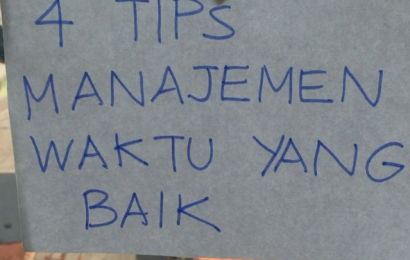 4 TIPS
MANAJEMEN
WAKTU YANG
BAIK